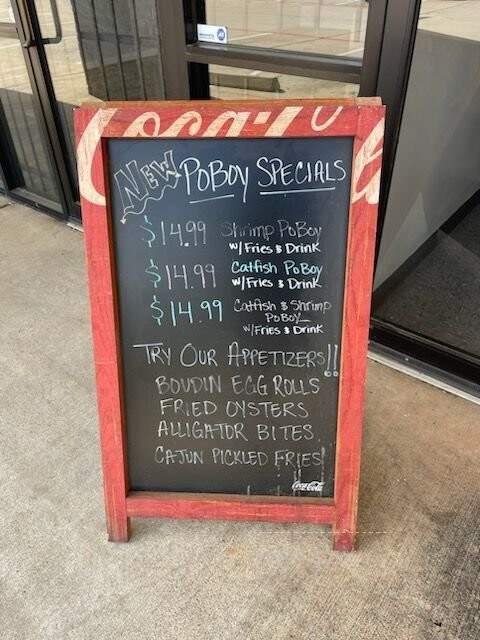 Coca-Co
New PoBoy Specials
$14.99 Shrimp PoBoy
w/ Fries & Drink
$14.99 Catfish PoBoy
w/ Fries & Drink
$14.99 Catfish & Shrimp
PoBoy
w/ Fries & Drink
Try Our Appetizers!!
BOUDIN EGG ROLLS
FRIED OYSTERS
ALLIGATOR BITES
CAJUN PICKLED FRIES!
Coca-Cola